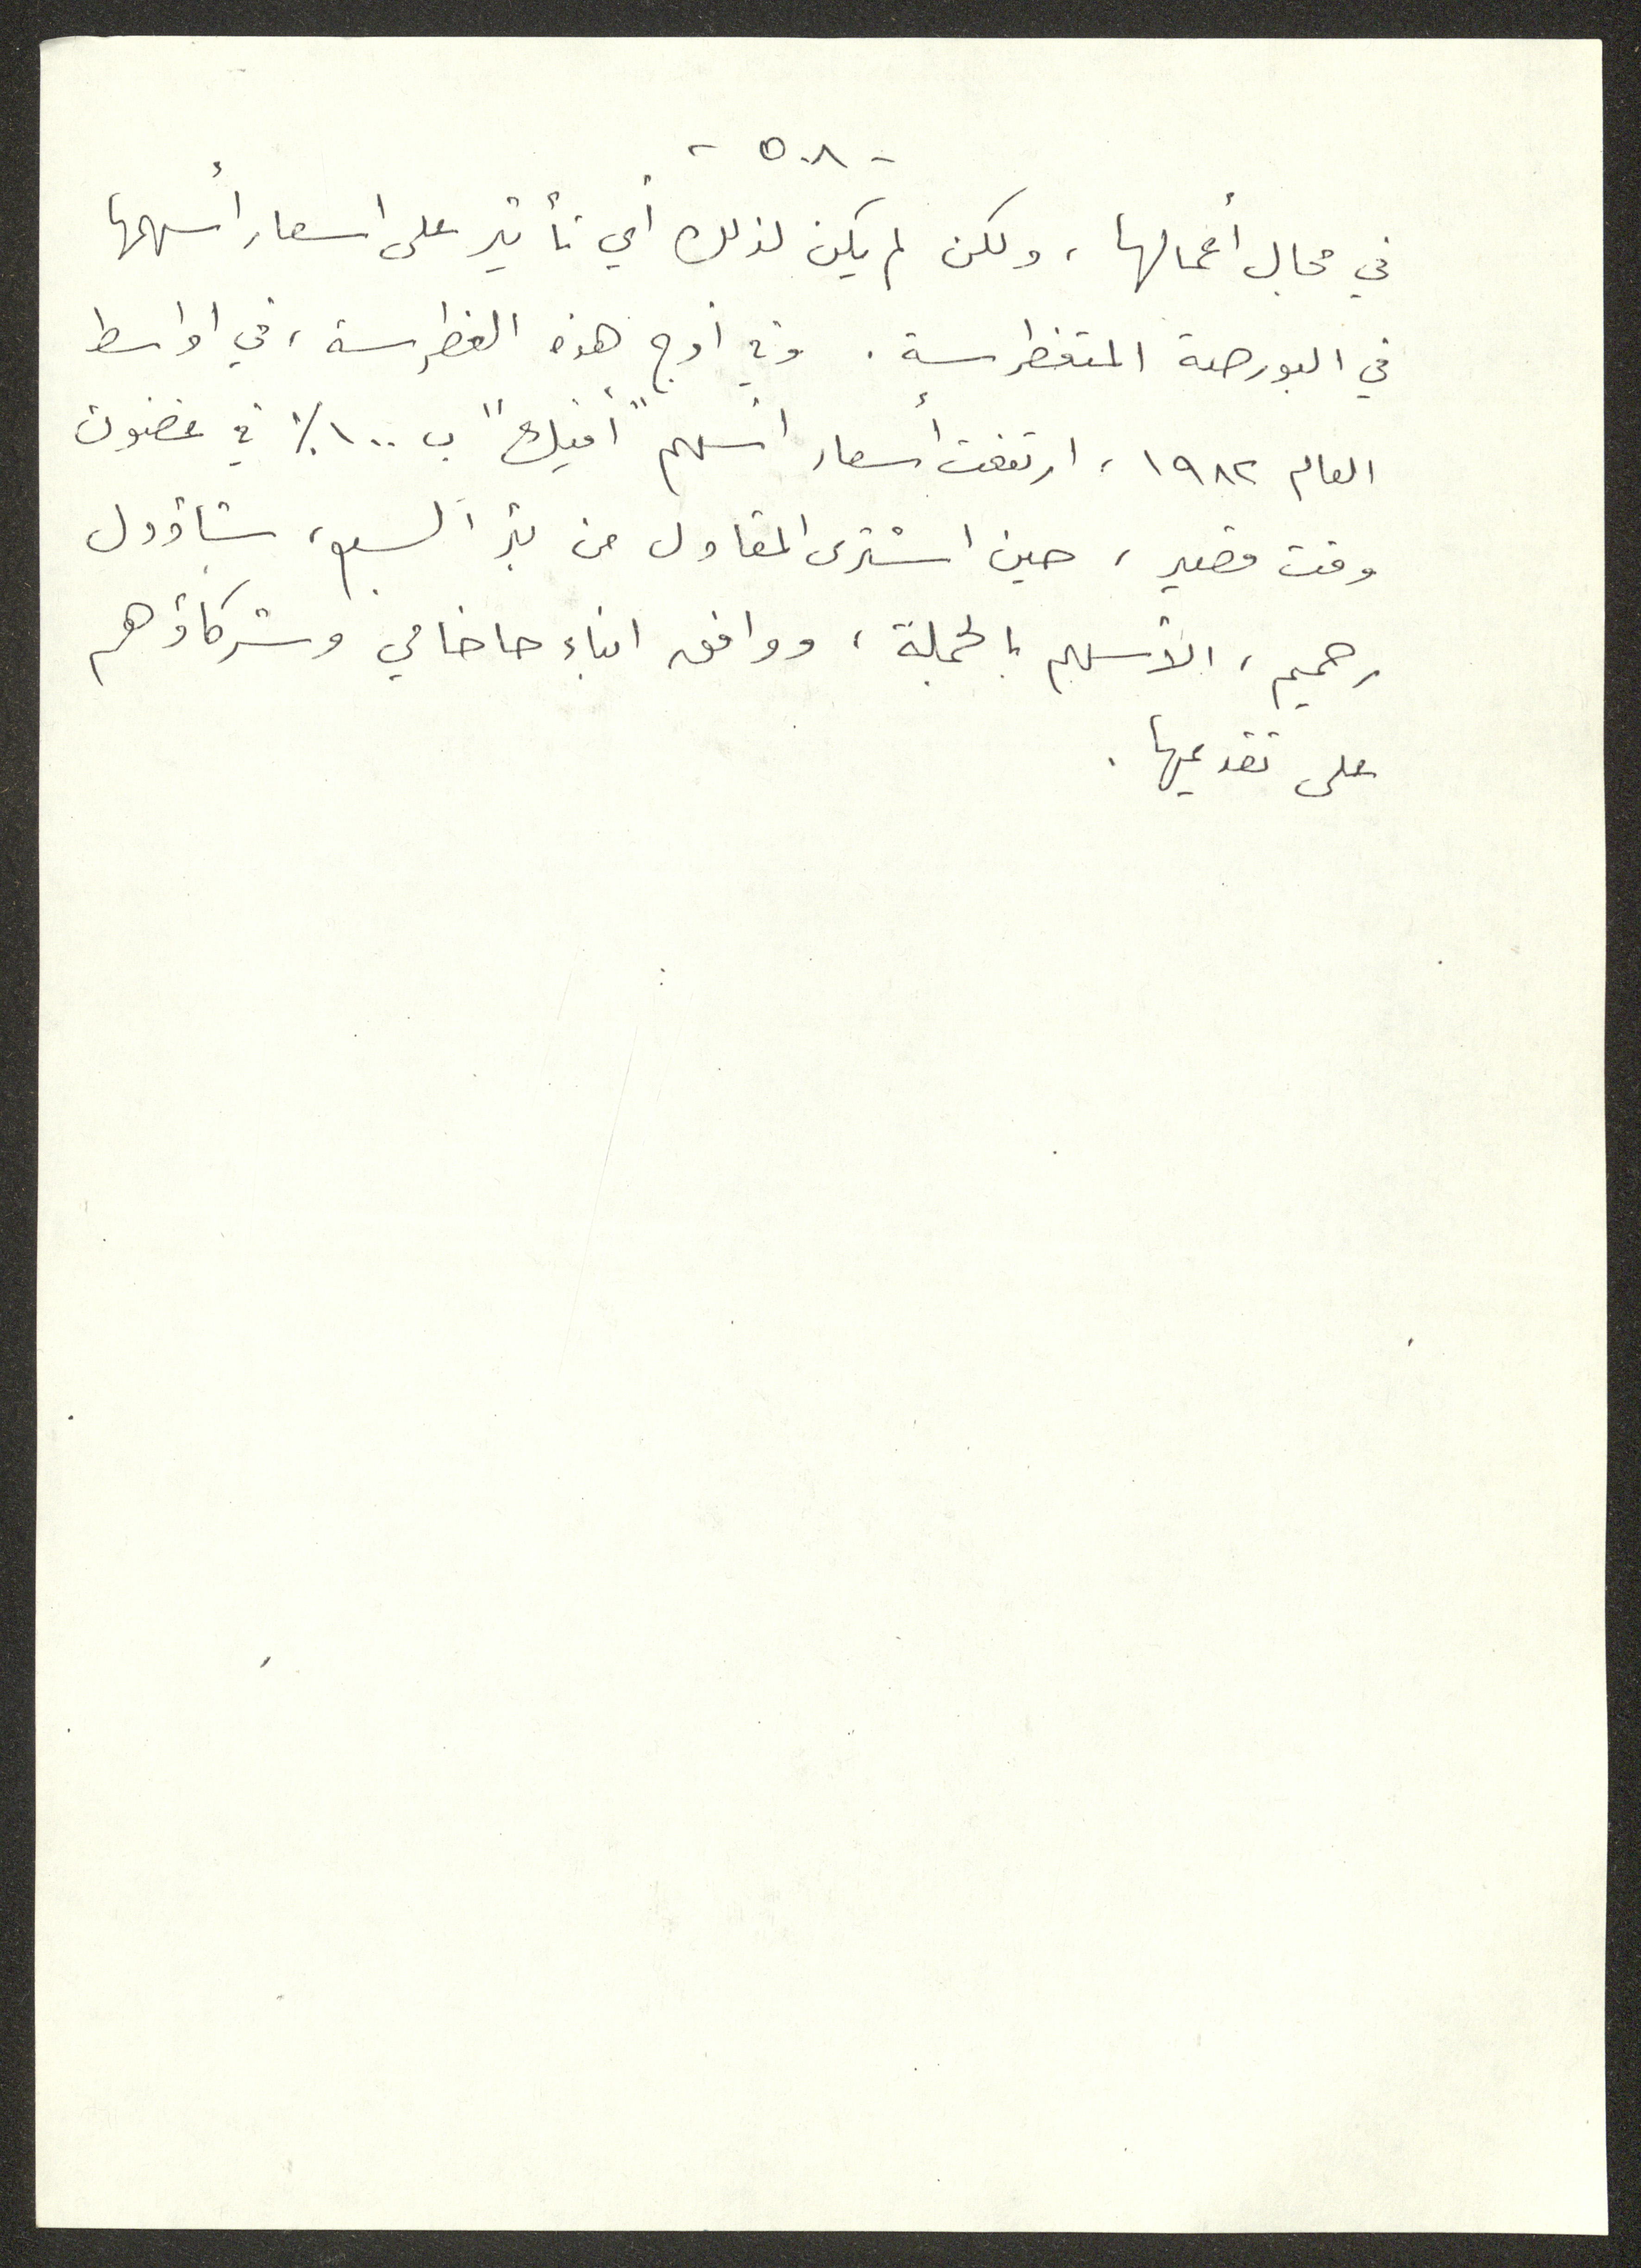 - ٥٠٨ -
في مجال أعمالها ، ولكن لم يكن لذلك أي تأثير على اسعار أسهمها
في البورصة المتغطرسة . وفي أوج هذه الغطرسة ، في اواسط
العام ١٩٨٢ ، ارتفعت أسعار أسهم "أفيك" ب ١٠٠٪ في غضون
وقت قصير ، حين اشترى المقاول من بئر السبع ، شاؤول
رحميم ، الأسهم بالجملة ، ووافق ابناء حاخامي وشركاؤهم
على تقديمها .